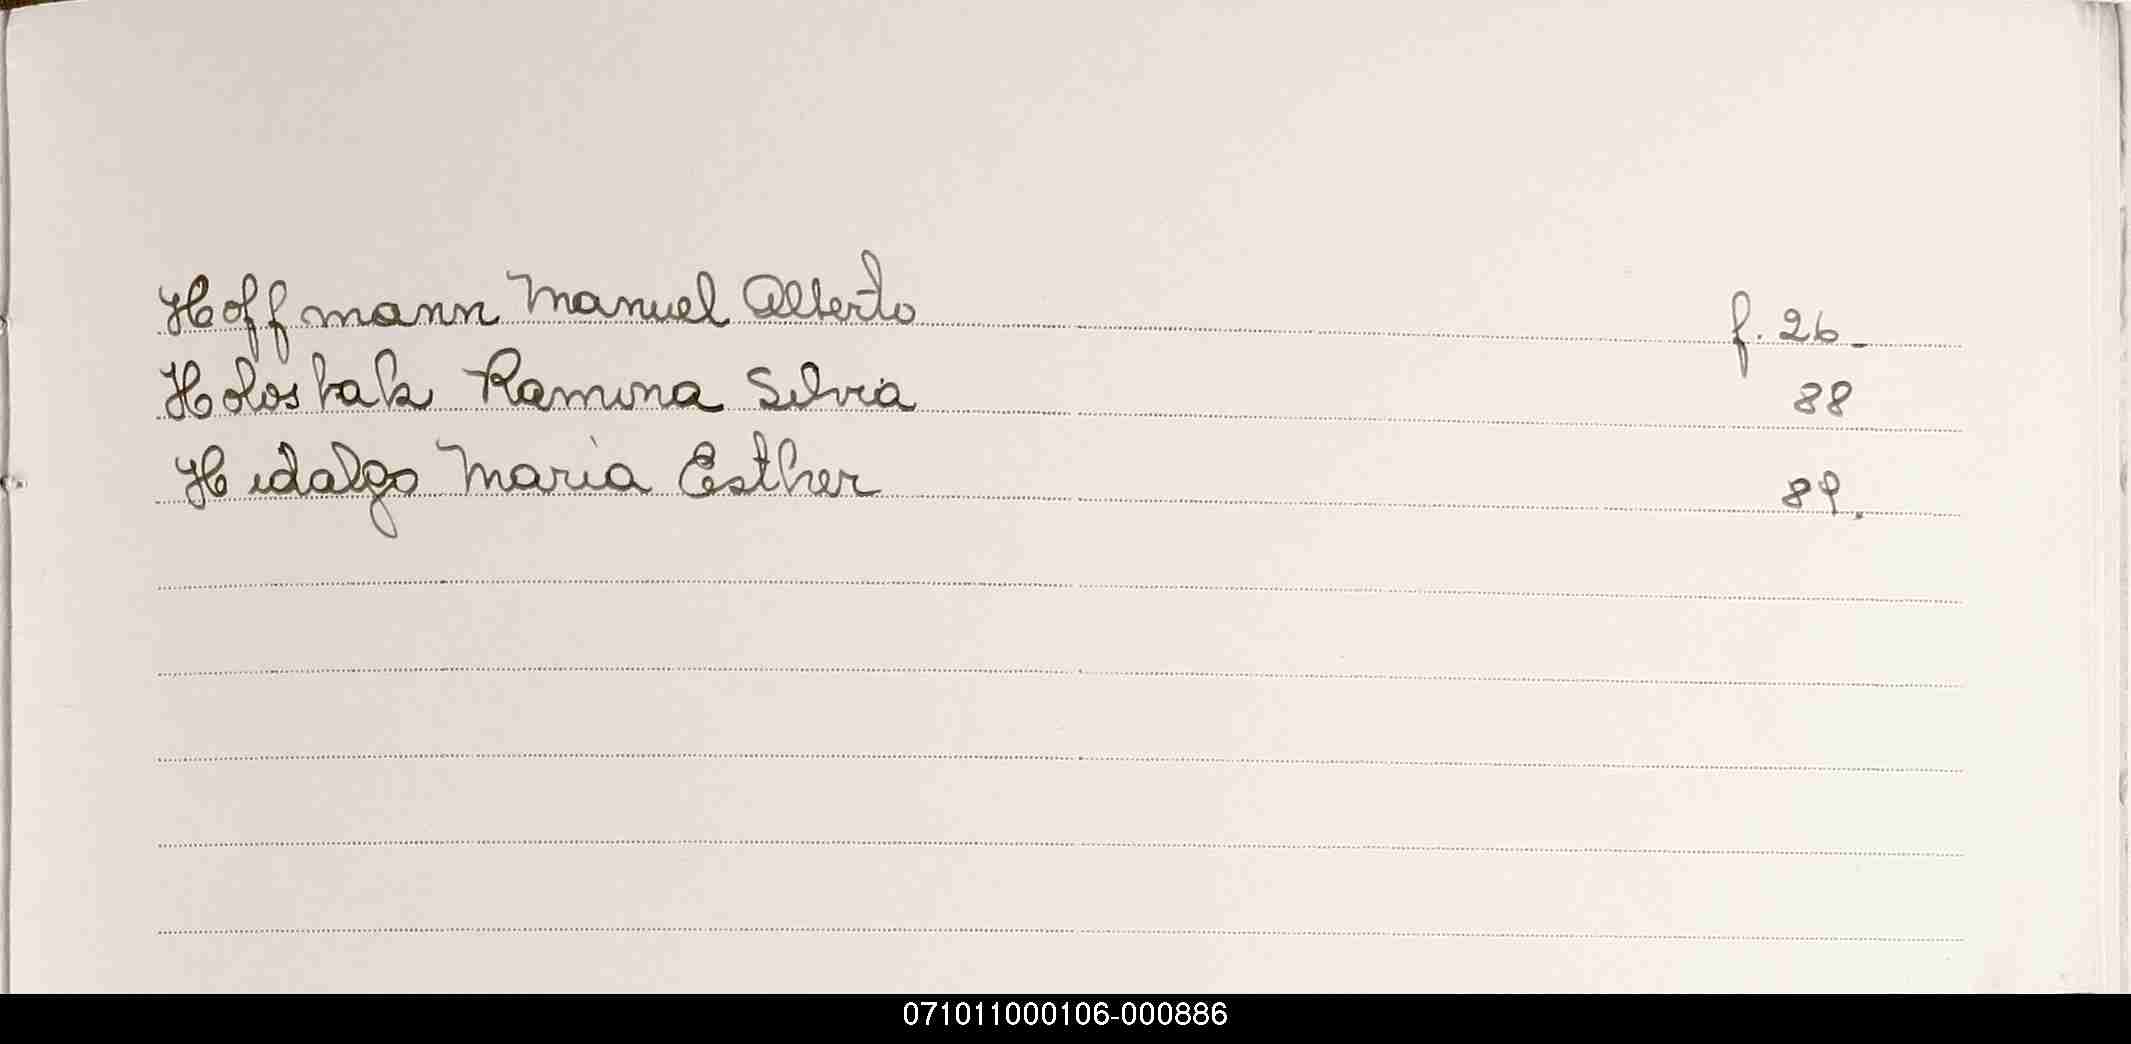 Hoffmann Manuel Alberto f. 26_
Ramona Silvia 88
Hidalgo María Esther 89.
071011000106-000886